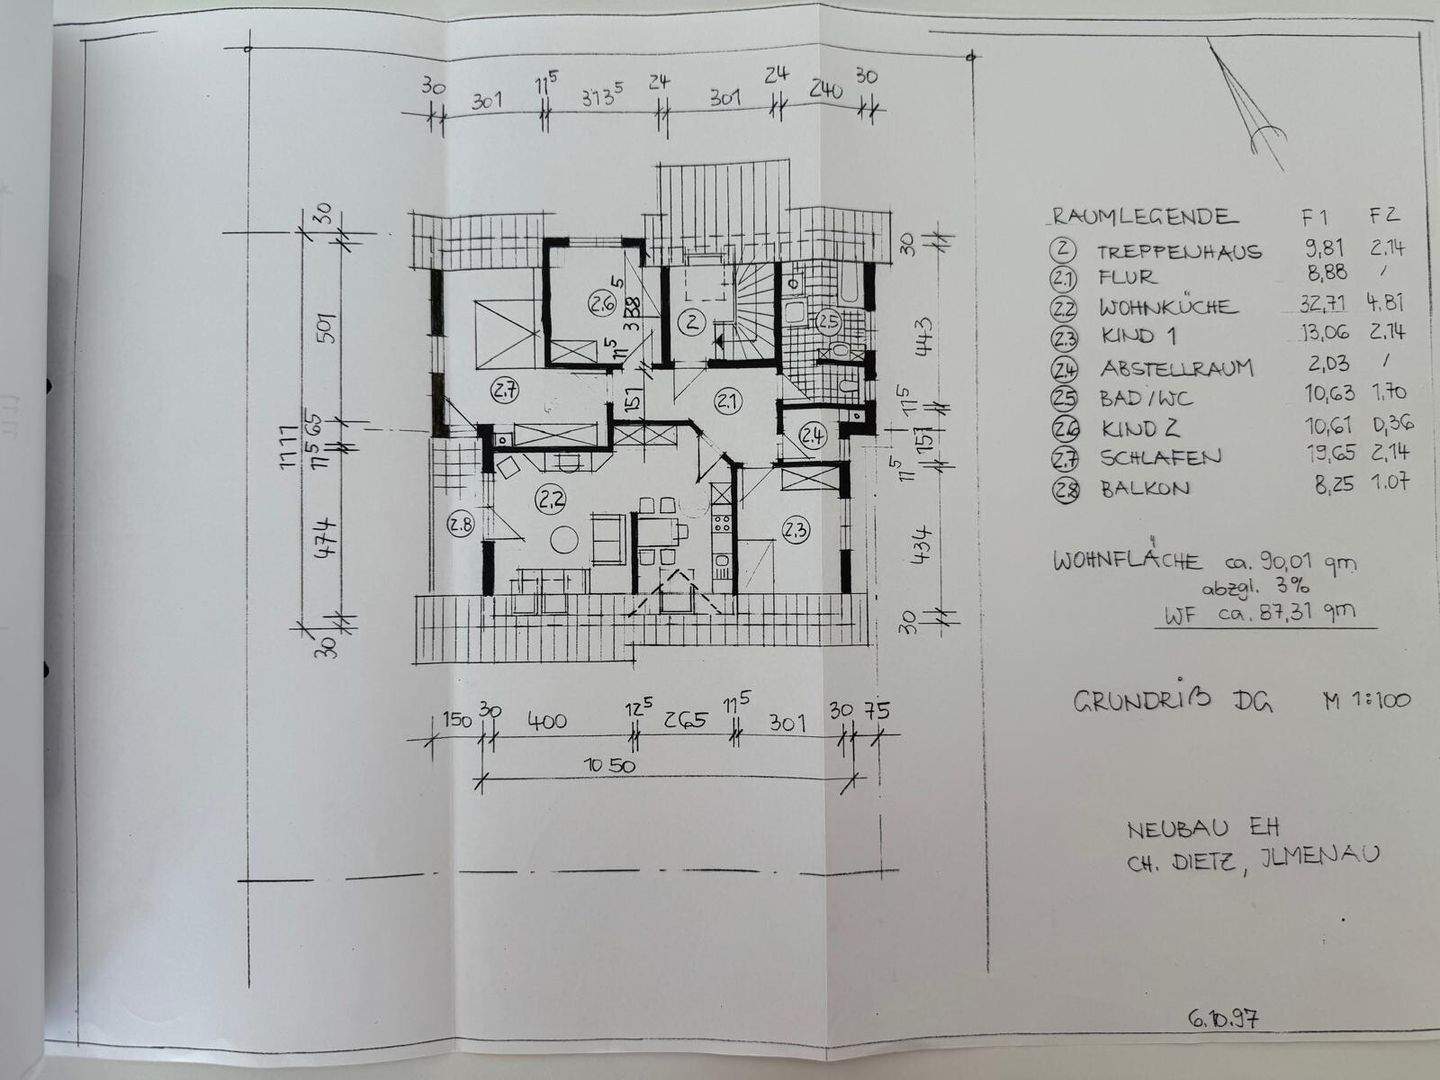 30 301 11⁵ 313⁵ 24 301 24 240 30
30
501
65
11⁵
474
30
1111
30
443
11⁵
151
11⁵
434
30
2.6
388⁵
11⁵
151
2
2.5
2.7
2.1
2.4
2.2
2.8
2.3
150 30 400 12⁵ 265 11⁵ 301 30 75
1050
RAUMLEGENDE F1 F2
2 TREPPENHAUS 9,81 2.14
2.1 FLUR 8,88 /
2.2 WOHNKÜCHE 32,71 4.81
2.3 KIND 1 13,06 2.14
2.4 ABSTELLRAUM 2,03 /
2.5 BAD/WC 10,63 1.70
2.6 KIND 2 10,61 0,36
2.7 SCHLAFEN 19,65 2,14
2.8 BALKON 8,25 1.07
WOHNFLÄCHE ca. 90,01 qm
abzgl. 3%
WF ca. 87,31 qm
GRUNDRIß DG M 1:100
NEUBAU EH
CH. DIETZ, ILMENAU
6.10.97